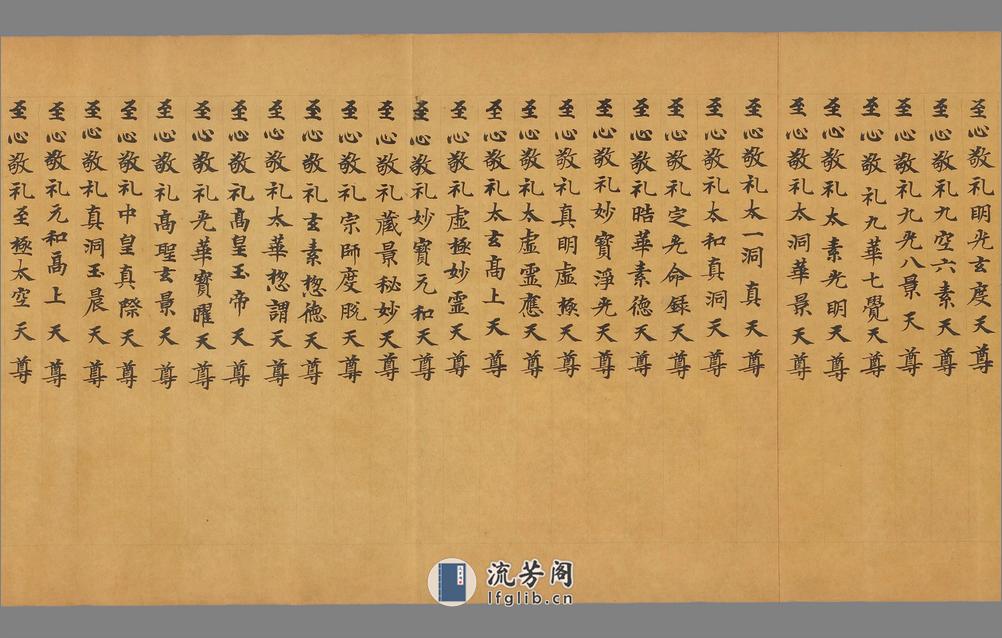 至心敬礼明光玄度天尊
至心敬礼九空六素天尊
至心敬礼九光八景天尊
至心敬礼九華七覺天尊
至心敬礼太素光明天尊
至心敬礼太洞華景天尊
至心敬礼太一洞真天尊
至心敬礼太和真洞天尊
至心敬礼定光命錄天尊
至心敬礼晧華素德天尊
至心敬礼妙寶淨光天尊
至心敬礼真明虛極天尊
至心敬礼太虛靈應天尊
至心敬礼太玄高上天尊
至心敬礼虛極妙靈天尊
至心敬礼妙寶元和天尊
至心敬礼藏景秘妙天尊
至心敬礼宗師度脫天尊
至心敬礼玄素惣德天尊
至心敬礼太華惣謂天尊
至心敬礼高皇玉帝天尊
至心敬礼光華寶曜天尊
至心敬礼高聖玄景天尊
至心敬礼中皇真際天尊
至心敬礼真洞玉晨天尊
至心敬礼元和高上天尊
至心敬礼至極太空天尊
流芳阁
lfglib.cn